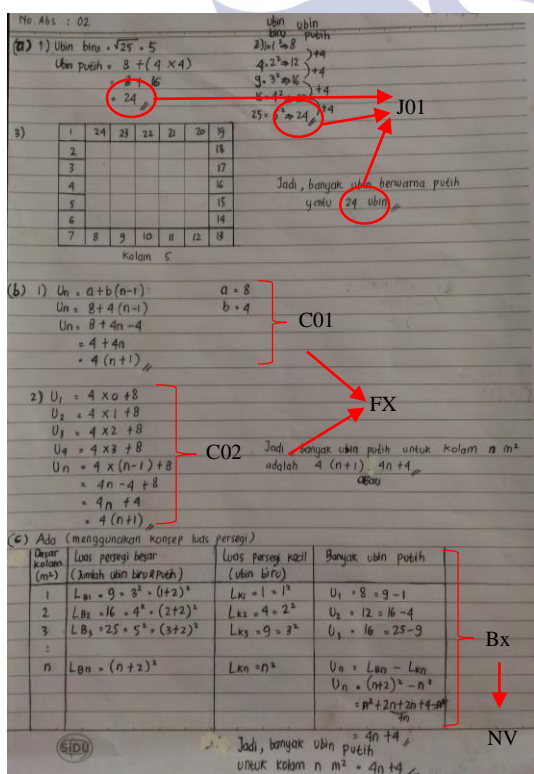 No. Abs : 02
(a) 1) Ubin biru = √25 = 5
Ubin putih = 8 + (4 × 4)
= 8 + 16
= 24 //
ubin biru ubin putih
2) 1=1² ⇒ 8
4=2² ⇒ 12
9=3² ⇒ 16
16=4² ⇒ 20
25=5² ⇒ 24 //
+4
+4
+4
+4
J01
3)
1 24 23 22 21 20 19
2 18
3 17
4 16
5 15
6 14
7 8 9 10 11 12 13
Kolam 5
Jadi, banyak ubin berwarna putih
yaitu 24 ubin //
(b) 1) Un = a+b(n-1) a = 8
Un = 8+4(n-1) b = 4
Un = 8+4n-4
= 4+4n
= 4(n+1) //
C01
FX
2) U₁ = 4 × 0 +8
U₂ = 4 × 1 +8
U₃ = 4 × 2 +8
U₄ = 4 × 3 +8
Un = 4 × (n-1) +8
= 4n -4 +8
= 4n +4
= 4(n+1) //
C02
Jadi, banyak ubin putih untuk kolam n m²
adalah 4(n+1) atau 4n+4 //
(c) Ada (menggunakan konsep luas persegi)
Besar kolam (m²) Luas persegi besar (Jumlah ubin biru & putih) Luas persegi kecil (ubin biru) Banyak ubin putih
1 L_B1 = 9 = 3² = (1+2)² L_K1 = 1 = 1² U₁ = 8 = 9-1
2 L_B2 = 16 = 4² = (2+2)² L_K2 = 4 = 2² U₂ = 12 = 16-4
3 L_B3 = 25 = 5² = (3+2)² L_K3 = 9 = 3² U₃ = 16 = 25-9
:
n L_Bn = (n+2)² L_Kn = n² Un = L_Bn - L_Kn
Un = (n+2)² - n²
= n²+2n+2n+4-n²
4n
= 4n+4 //
Bx
NV
SIDU
Jadi, banyak ubin putih
untuk kolam n m² = 4n+4 //